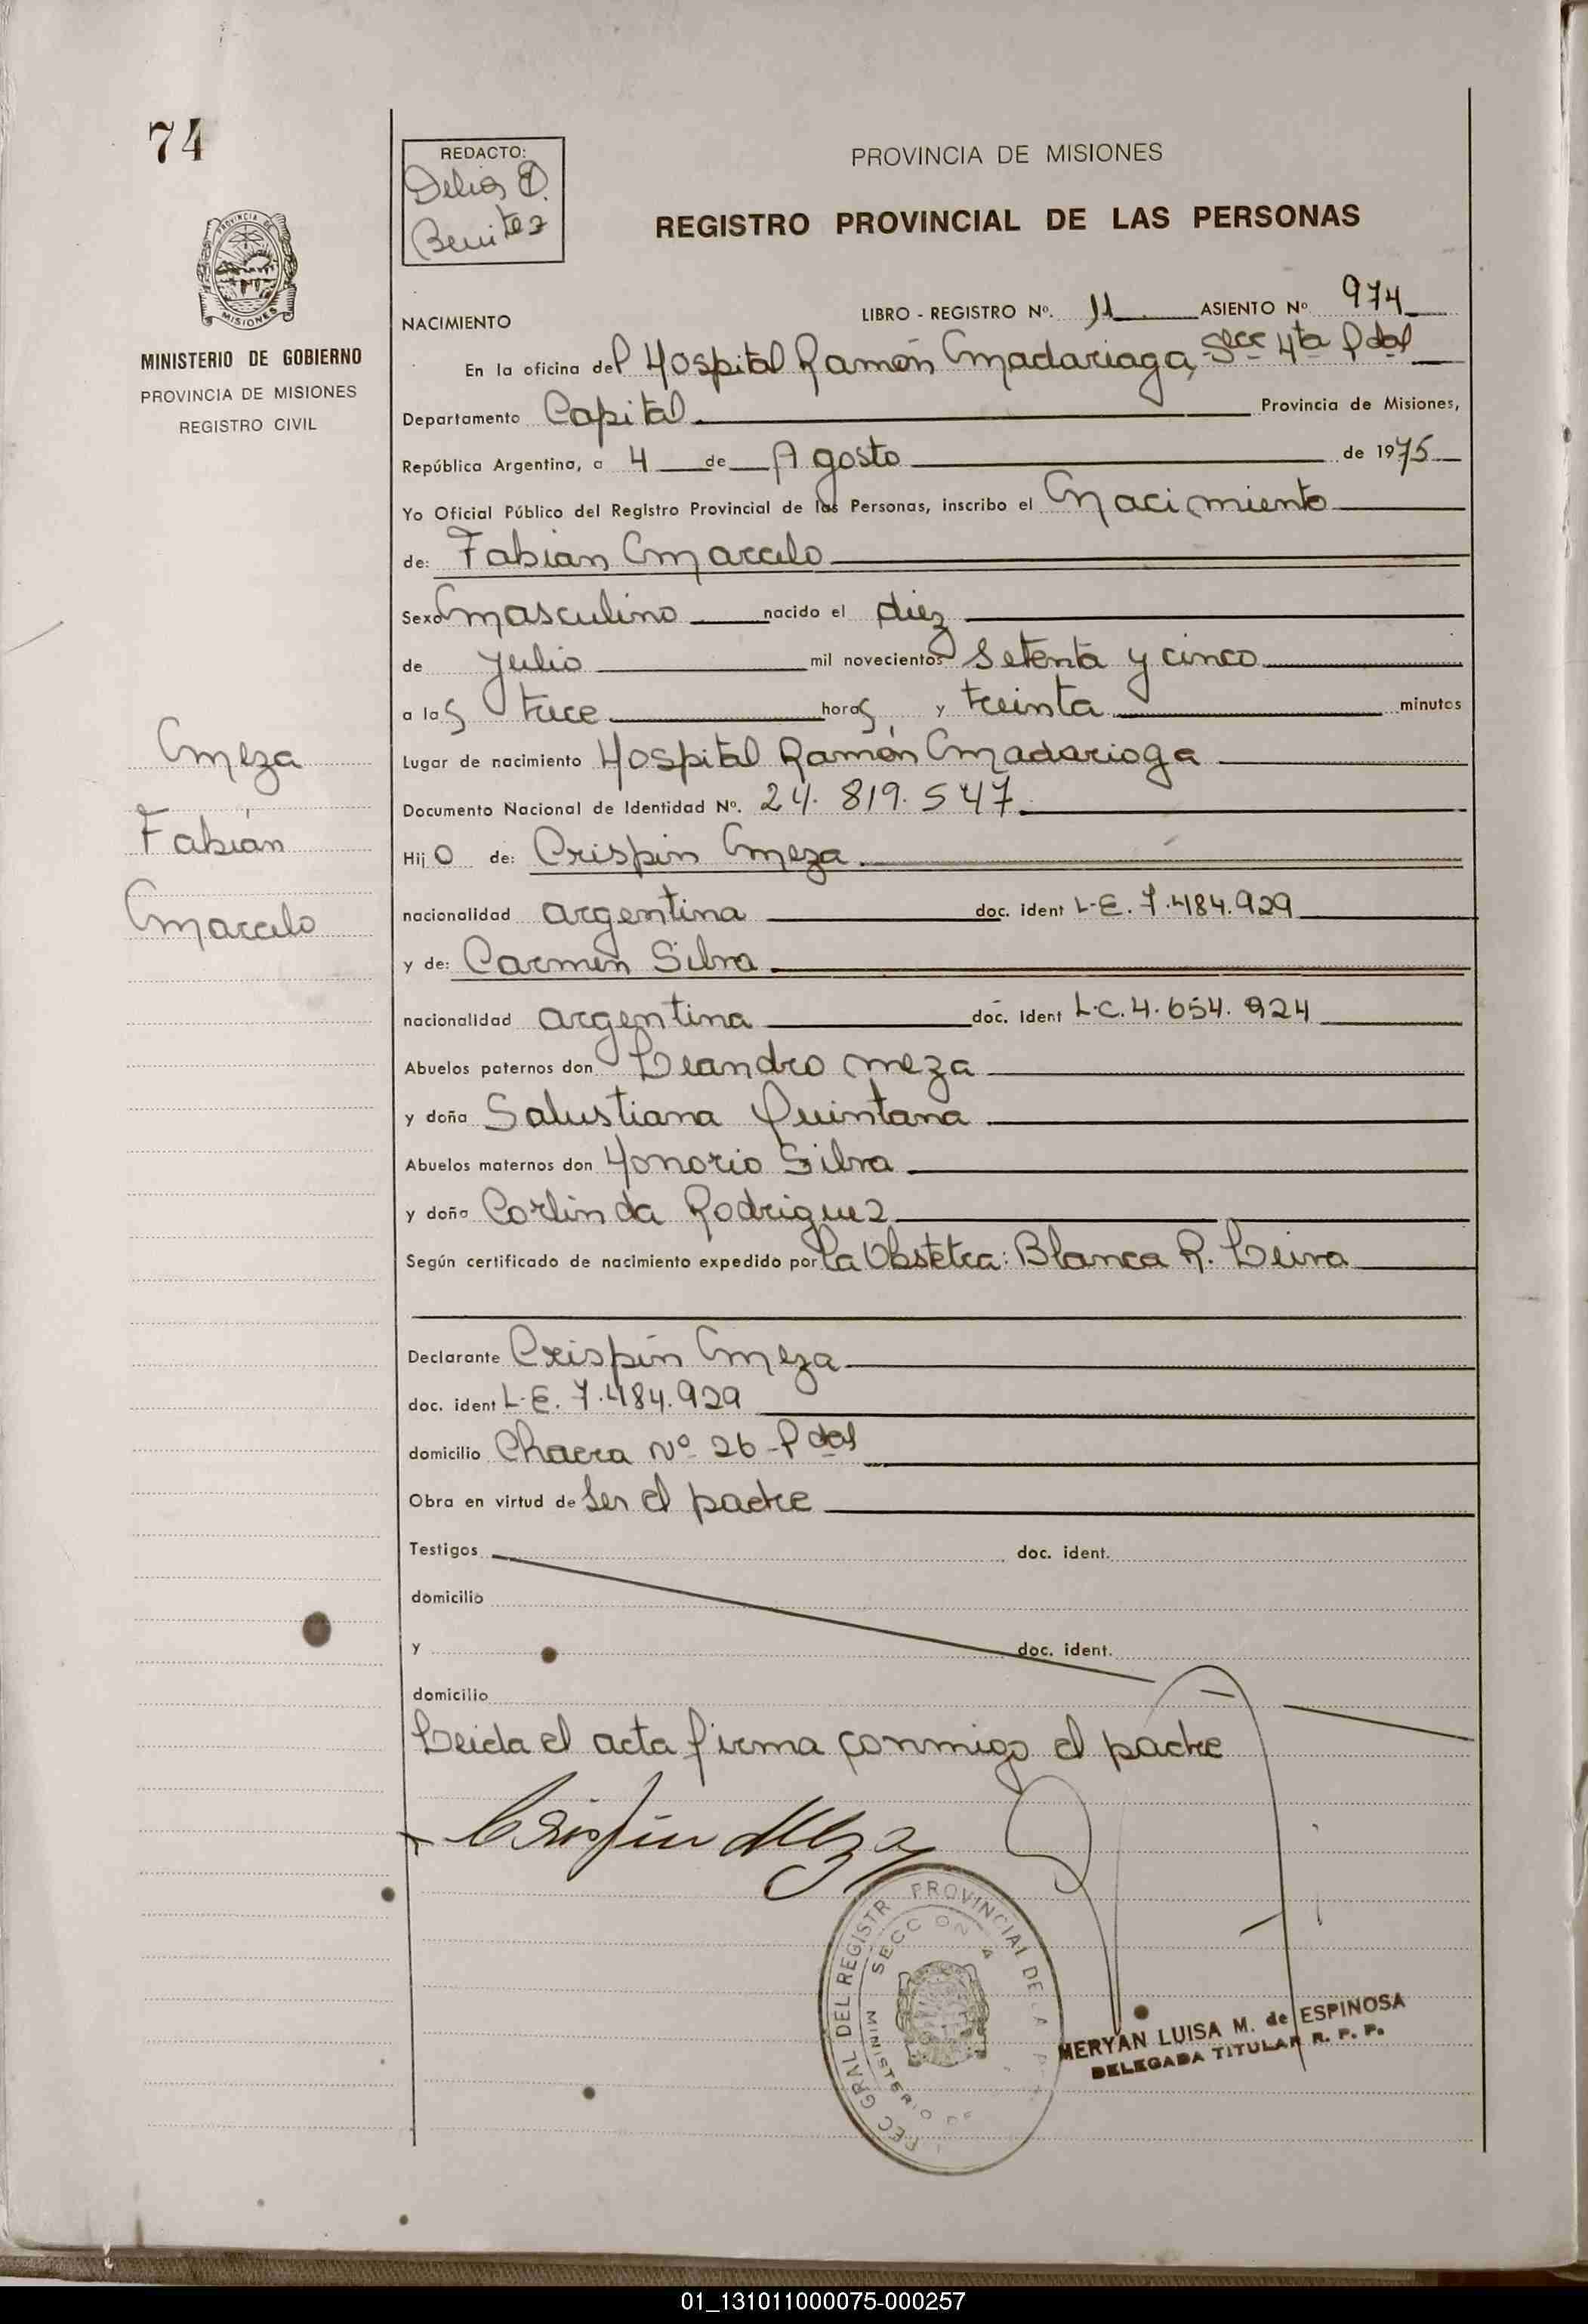 74
REDACTO:
Delia
Benitez
PROVINCIA DE MISIONES
REGISTRO PROVINCIAL DE LAS PERSONAS
PROVINCIA DE
MISIONES
MINISTERIO DE GOBIERNO
PROVINCIA DE MISIONES
REGISTRO CIVIL
NACIMIENTO LIBRO - REGISTRO Nº. 11 ASIENTO Nº 974
En la oficina del Hospital Ramón Madariaga, Secc 4ta Pdas
Departamento Capital Provincia de Misiones,
República Argentina, a 4 de Agosto de 1975
Yo Oficial Público del Registro Provincial de las Personas, inscribo el Nacimiento
de: Fabian Marcelo
Sexo masculino nacido el diez
de Julio mil novecientos setenta y cinco
a las trece horas y treinta minutos
Meza
Fabián
Marcelo
Lugar de nacimiento Hospital Ramón Madariaga
Documento Nacional de Identidad Nº. 24.819.547
Hijo de: Crispin Meza
nacionalidad argentina doc. ident L.E. 7.484.929
y de: Carmen Silva
nacionalidad argentina doc. Ident L.C. 4.654.924
Abuelos paternos don Leandro Meza
y doña Salustiana Quintana
Abuelos maternos don Honorio Silva
y doña Corlinda Rodriguez
Según certificado de nacimiento expedido por la Obstetra: Blanca R. Leiva
Declarante Crispín Meza
doc. ident L.E. 7.484.929
domicilio Chacra Nº 26 - Pdas
Obra en virtud de ser el padre
Testigos doc. ident.
domicilio
y doc. ident.
domicilio
Leida el acta firma conmigo el padre
Crispin Meza
GRAL DEL REGISTR PROVINCIAL DE
MINISTERIO DE
MERYAN LUISA M. de ESPINOSA
DELEGADA TITULAR R. P. P.
01_131011000075-000257